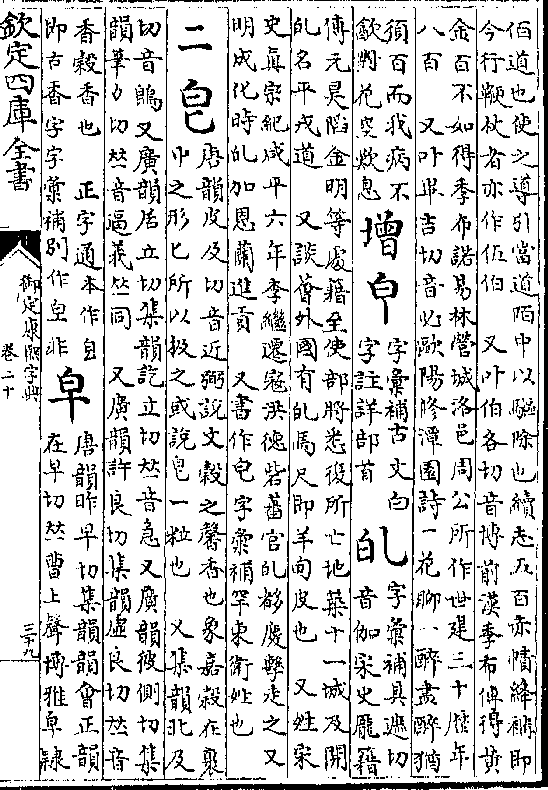 佰道也使之導引當道陌中以驅除也續志五百赤幘絳褠即
今行鞭杖者亦作伍伯　又叶伯各切音博前漢季布傳得黃
金百不如得季布諾易林營城洛邑周公所作世建三十歷年
八百　又叶卑吉切音必歐陽修潭園詩一花聊一醉盡醉猶
須百而我病不
飲對花空歎息
增
字彙補古文白
字註詳部首
癿
字彙補具遮切
音伽宋史龐籍
傳元昊陷金明等處籍至使部將悉復所亡地築十一城及開
癿名平戎道　又談薈外國有癿馬尺即羊肉皮也　又姓宋
史真宗紀咸平六年李繼遷寇洪德砦蕃官癿慶擊走之又
明成化時癿加恩蘭進貢　又書作字彙補罕東衛姓也
二皀
唐韻皮及切音近弼說文穀之馨香也象嘉穀在裹
中之形匕所以扱之或說皀一粒也　又集韻北及
切音鵖又廣韻居立切集韻訖立切𠀤音急又廣韻彼側切集
韻筆力切𠀤音逼義𠀤同　又廣韻許良切集韻虛良切𠀤音
香穀香也　正字通本作皀
即古香字字彙補別作皂非
皁
唐韻昨早切集韻韻會正韻
在早切𠀤曹上聲博雅皁隸
欽定四庫全書
御定康熙字典
卷二十
三十九